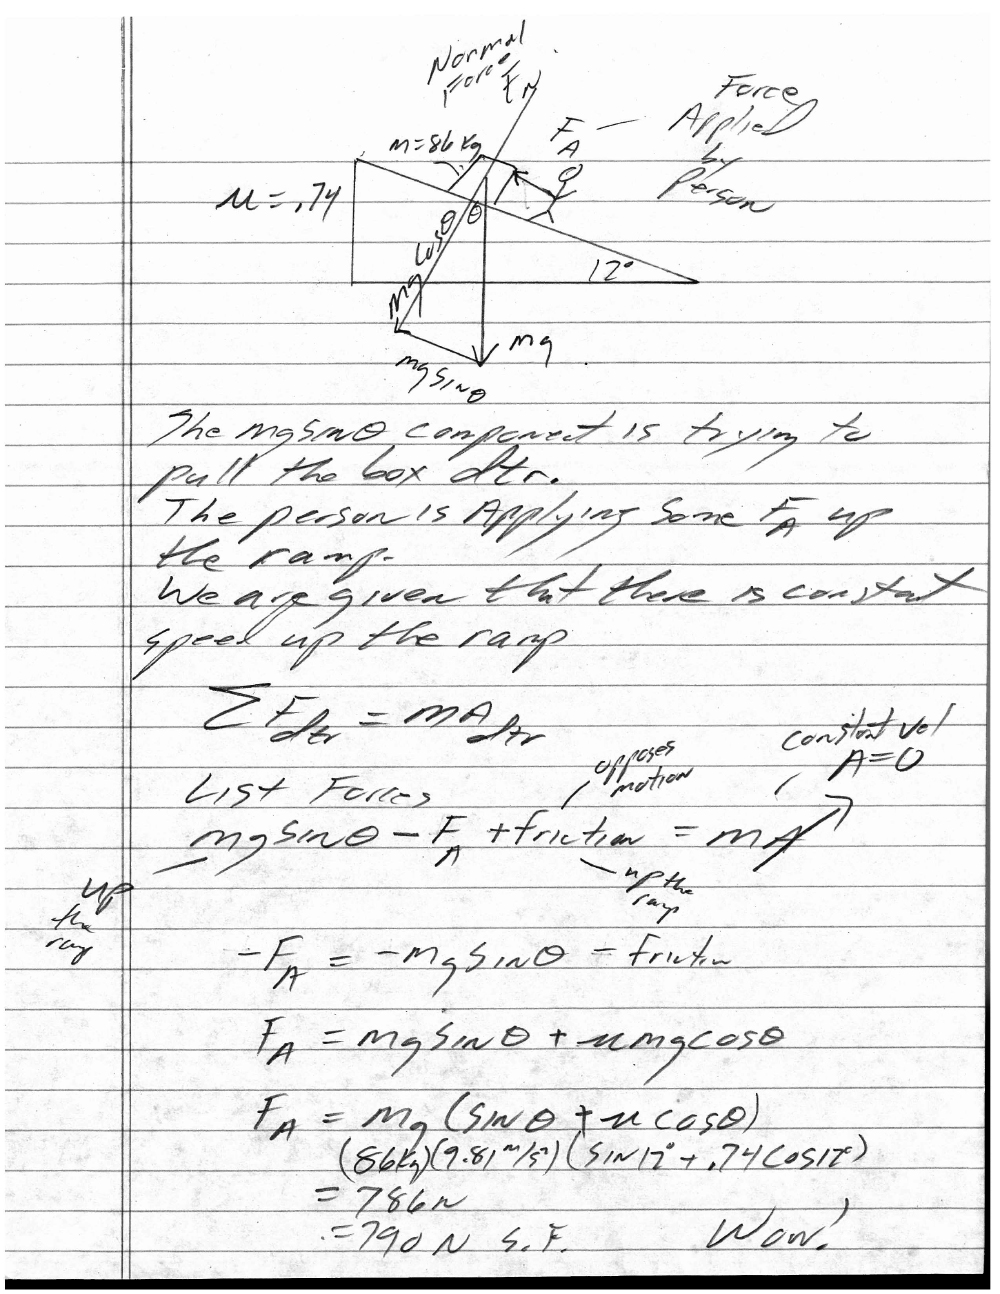 Normal
Force
F_N
Force
Applied
by
Person
F_A
m=86 kg
μ = .74
θ θ
mg cosθ
12°
mg
mg sinθ
The mg sinθ component is trying to
pull the box dtr.
The person is Applying some F_A up
the ramp.
We are given that there is constant
speed up the ramp
ΣF_dtr = mA_dtr
constant vel
A=0
opposes
motion
List Forces
mg sinθ - F_A + friction = mA
up the
ramp
up
the
ramp
-F_A = -mg sinθ = friction
F_A = mg sinθ + μmg cosθ
F_A = mg (sinθ + μ cosθ)
(86kg)(9.81 m/s²)(sin12° + .74 cos12°)
= 786N
= 790 N S.F. Wow!